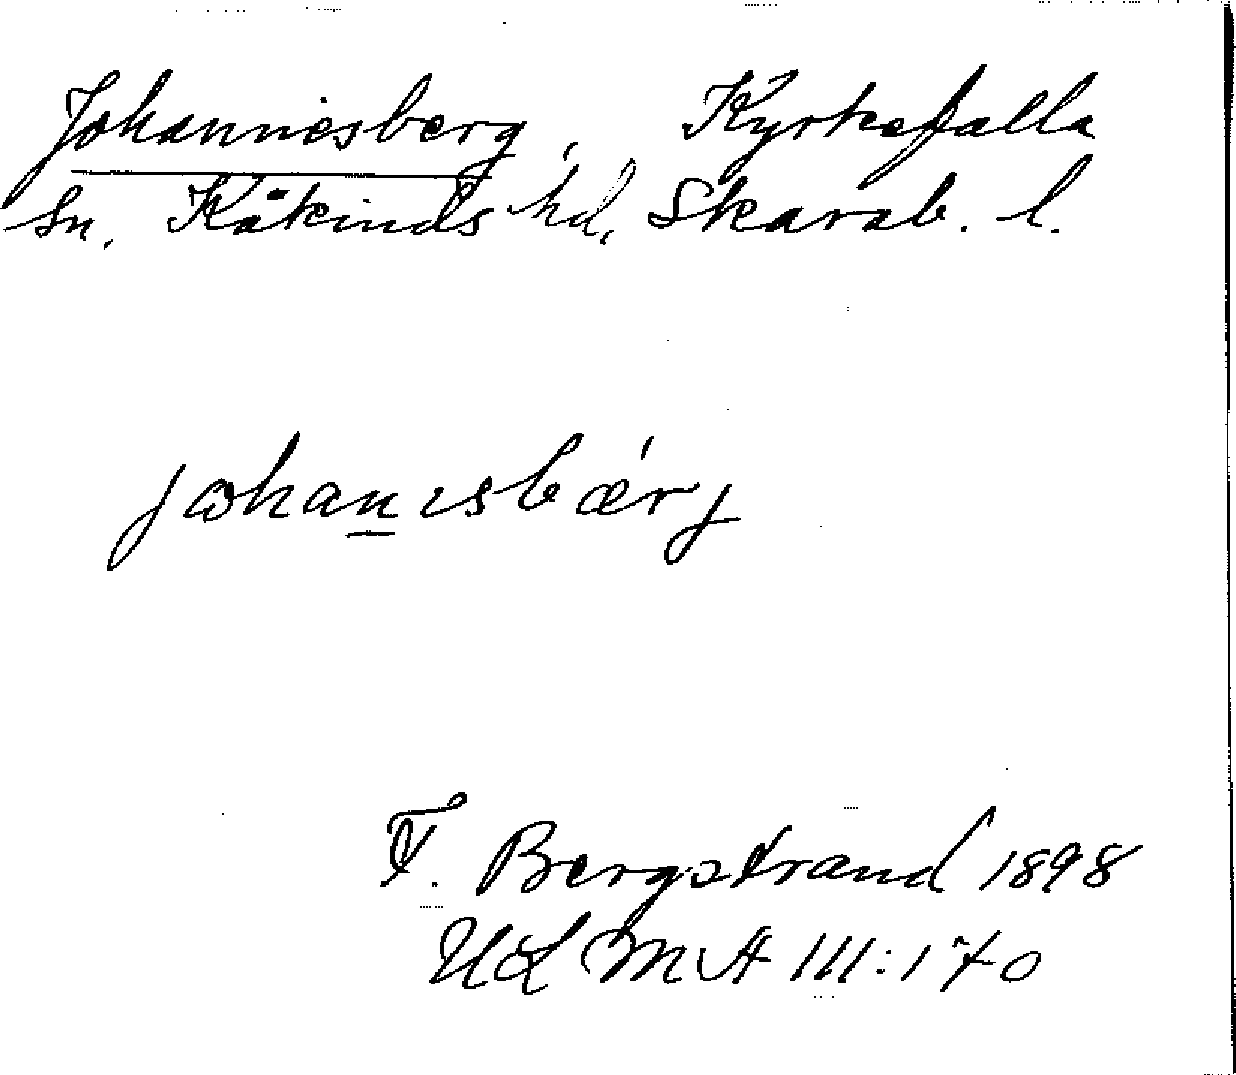 Johannesberg, Kyrkefalla
sn. Kåkinds hd, Skarab. l.
johanɩsbǽrj
F. Bergstrand 1898
ULMA III:170